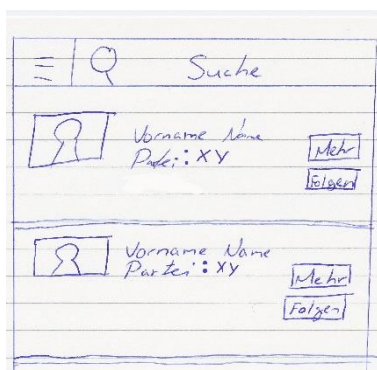 Suche
Vorname Name
Partei: XY
Mehr
Folgen
Vorname Name
Partei: XY
Mehr
Folgen